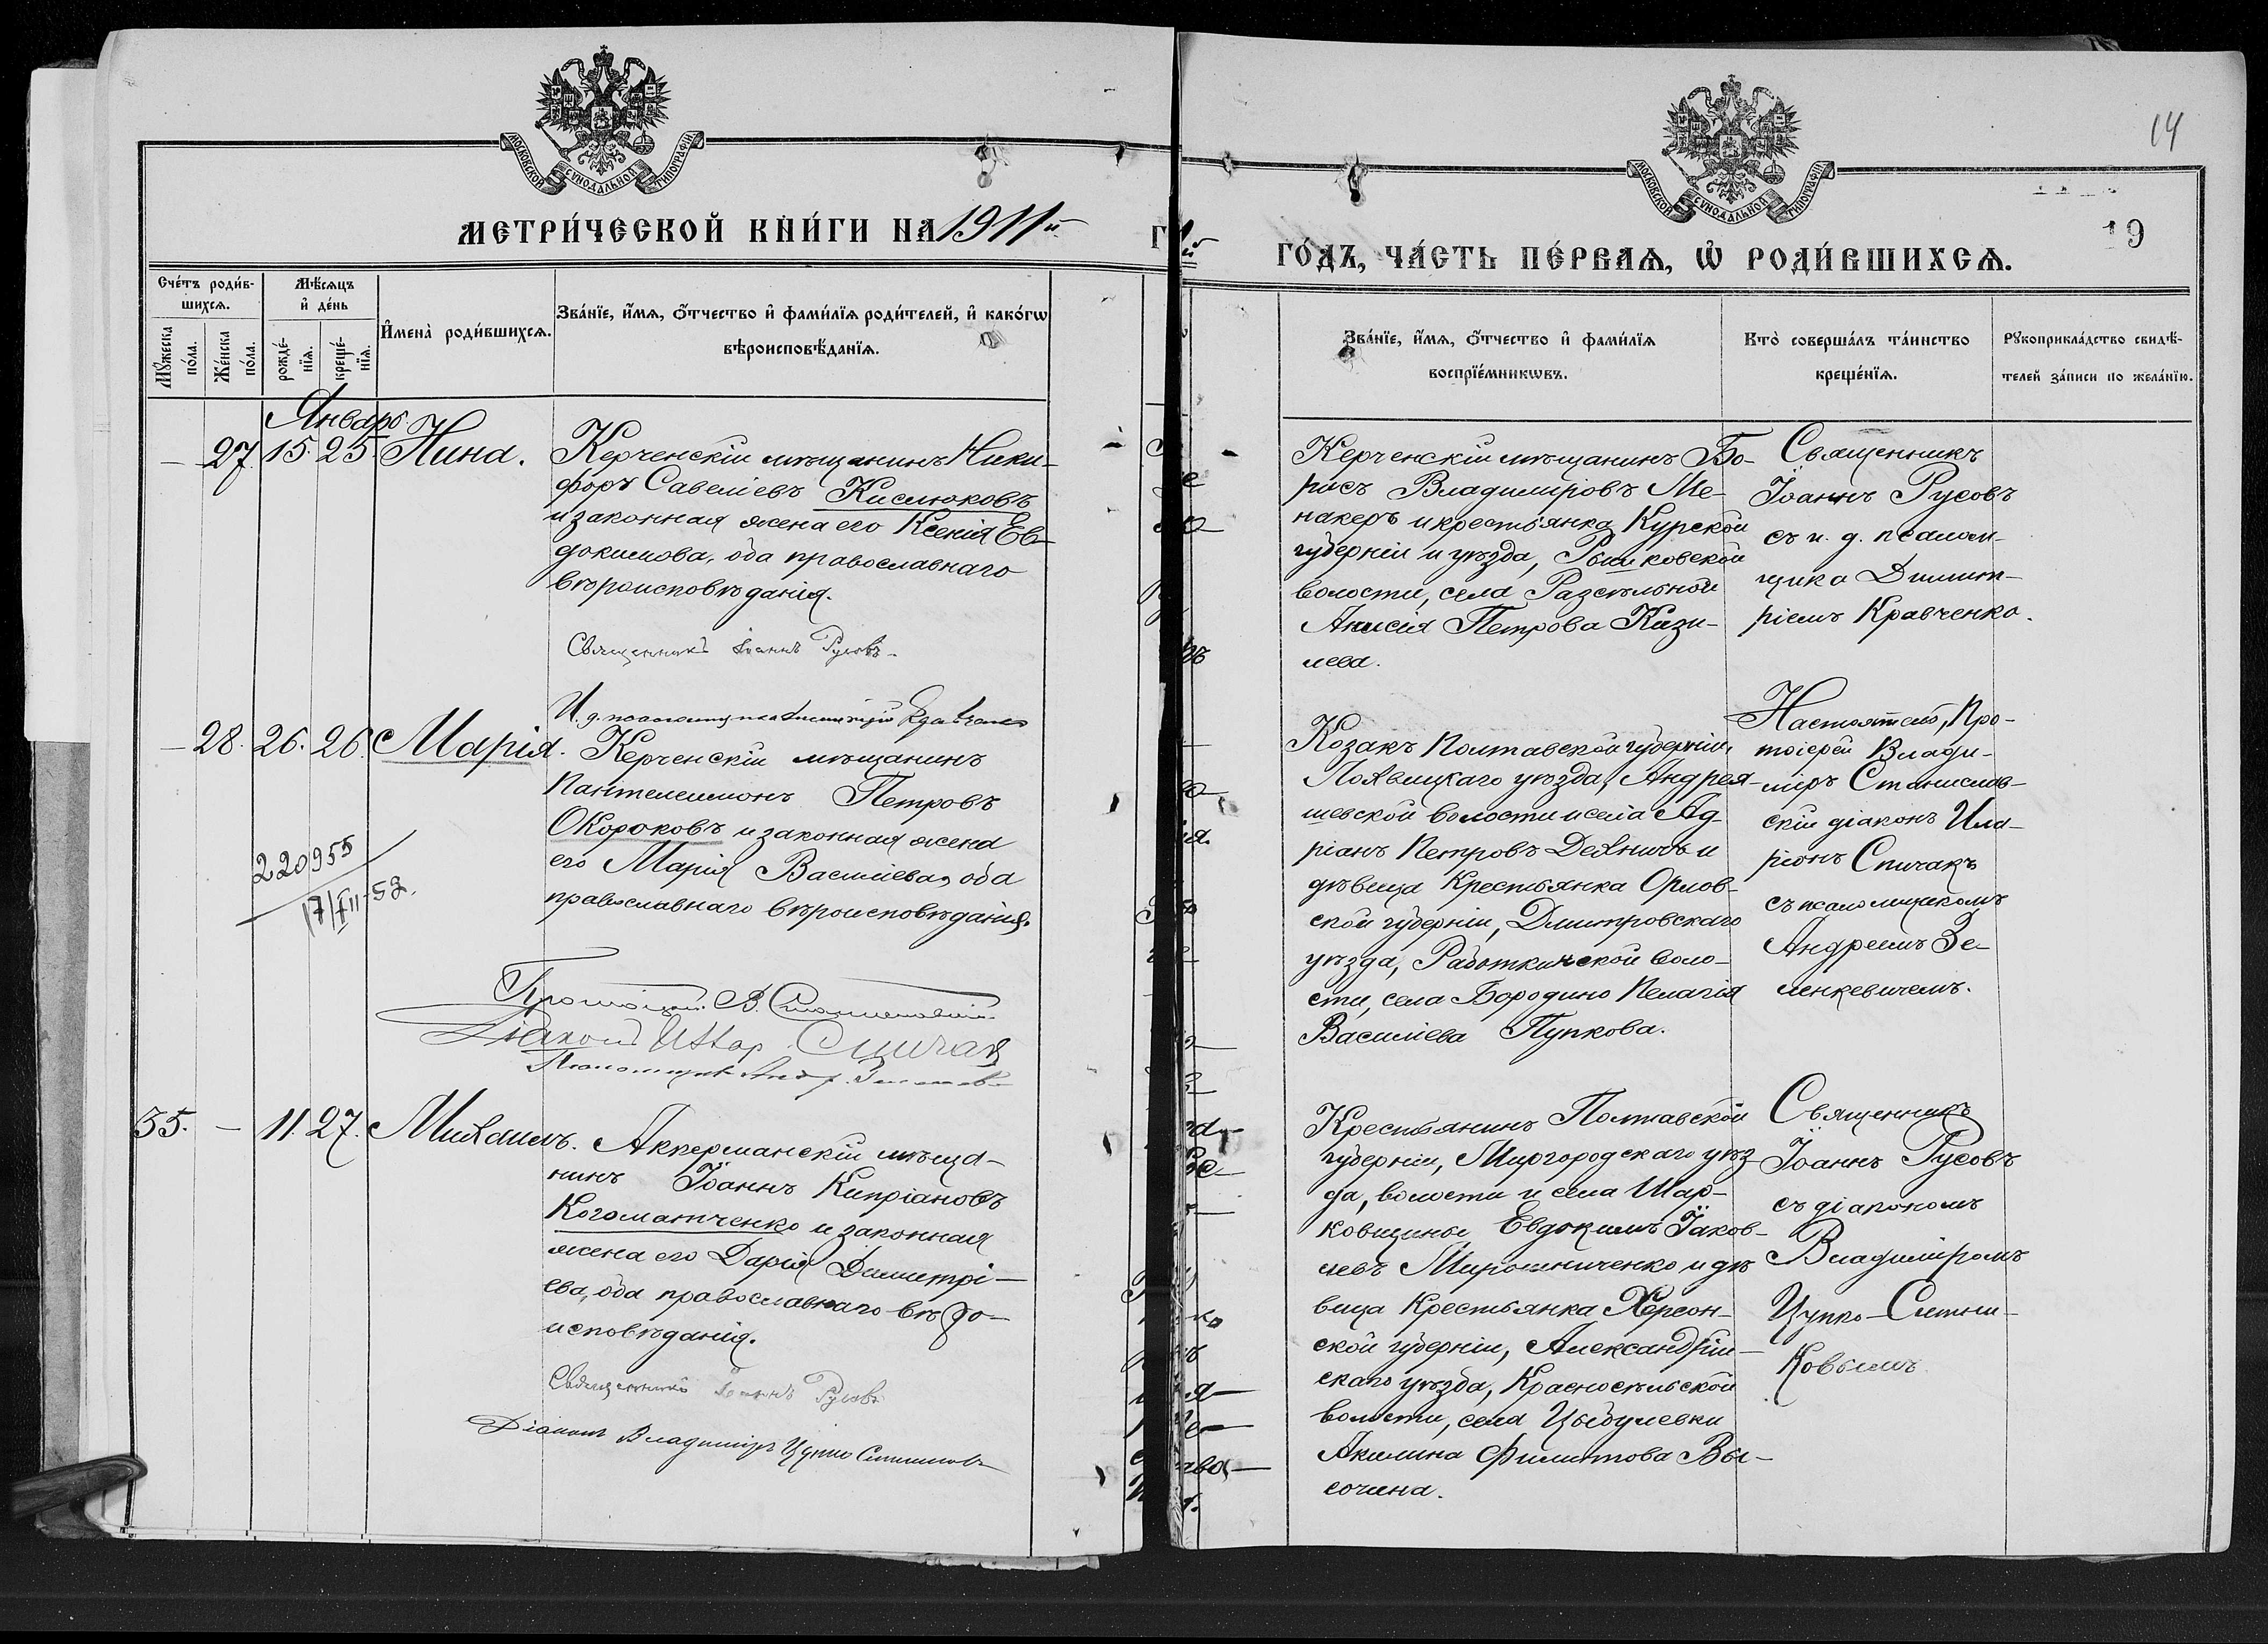 МОСКОВСКОЙ СѴНОДАЛЬНОЙ ТИПОГРАФІИ
МЕТРИ́ЧЕСКОЙ КНИ́ГИ НА 1911й
Сче́тъ роди́в-
шихсѧ.
Мꙋ́жеска
по́ла.
Же́нска
по́ла.
Мѣ́сѧцъ
и҆ де́нь
рожде́-
нїѧ.
креще́-
нїѧ.
И҆мена̀ роди́вшихсѧ.
Зва́нїе, и҆́мѧ, ѻ҆́тчество и҆ фами́лїѧ роди́телей, и҆ како́гѡ
вѣроисповѣ́данїѧ.
Январь
— 27. 15. 25. Нина.
Керченскій мѣщанинъ Ники-
форъ Савеліевъ Кислюковъ
и законная жена его Ксенія Ев-
докимова, оба православнаго
вѣроисповѣданія.
Священникъ Іоаннъ Русовъ
И. д. псаломщика Димитрій Кравченко
— 28. 26. 26. Марія.
Керченскій мѣщанинъ
Пантелеимонъ Петровъ
Окороковъ и законная жена
его Марія Васильева, оба
православнаго вѣроисповѣданія.
220955
17/XII-52.
Протоіерей В. Станиславскій
Діаконъ Илар. Спичак
Псаломщикъ Андр.
35. — 11. 27. Михаилъ.
Аккерманскій мѣща-
нинъ Іоаннъ Кипріановъ
Когоматченко и законная
жена его Дарія Димитрі-
ева, оба православнаго вѣро-
исповѣданія.
Священникъ Іоаннъ Русовъ
Діаконъ Владиміръ Цупко Ситников
14
МОСКОВСКОЙ СѴНОДАЛЬНОЙ ТИПОГРАФІИ
19
ГО́ДЪ, ЧА́СТЬ ПЕ́РВАѦ, Ѡ҆ РОДИ́ВШИХСѦ.
Зва́нїе, и҆́мѧ, ѻ҆́тчество и҆ фами́лїѧ
воспрїе́мникѡвъ.
Кто̀ соверша́лъ та́инство
креще́нїѧ.
Рꙋкоприкла́дство свидѣ́-
телей за́писи по жела́нїю.
Керченскій мѣщанинъ Бо-
рисъ Владиміровъ Ме-
накеръ и крестьянка Курской
губерніи и уѣзда, Рышковской
волости, села Разсѣльной
Анисія Петрова Кизи-
лева.
Священникъ
Іоаннъ Русовъ
съ и. д. псалом-
щика Димит-
ріемъ Кравченко.
Козакъ Полтавской губерніи,
Лохвицкаго уѣзда, Андрея-
шевской волости и села Ад-
ріанъ Петровъ Дехничъ и
дѣвица крестьянка Орлов-
ской губерніи, Дмитровскаго
уѣзда, Работкинской воло-
сти, села Бородино Пелагія
Василіева Пупкова.
Настоятель, Про-
тоіерей Влади-
міръ Станислав-
скій діаконъ Ила-
ріонъ Спичакъ
съ псаломщикомъ
Андреемъ Зе-
ленкевичемъ.
Крестьянинъ Полтавской
губерніи, Миргородскаго уѣз-
да, волости и села Шар-
ковщины Евдокимъ Іаков-
левъ Мирошниченко и дѣ
вица крестьянка Херсон-
ской губерніи, Александрій-
скаго уѣзда, Красносельской
волости, села Цыбулевки
Акилина Филиппова Вы-
сочина.
Священникъ
Іоаннъ Русовъ
съ діакономъ
Владиміромъ
Цупко-Ситни-
ковымъ